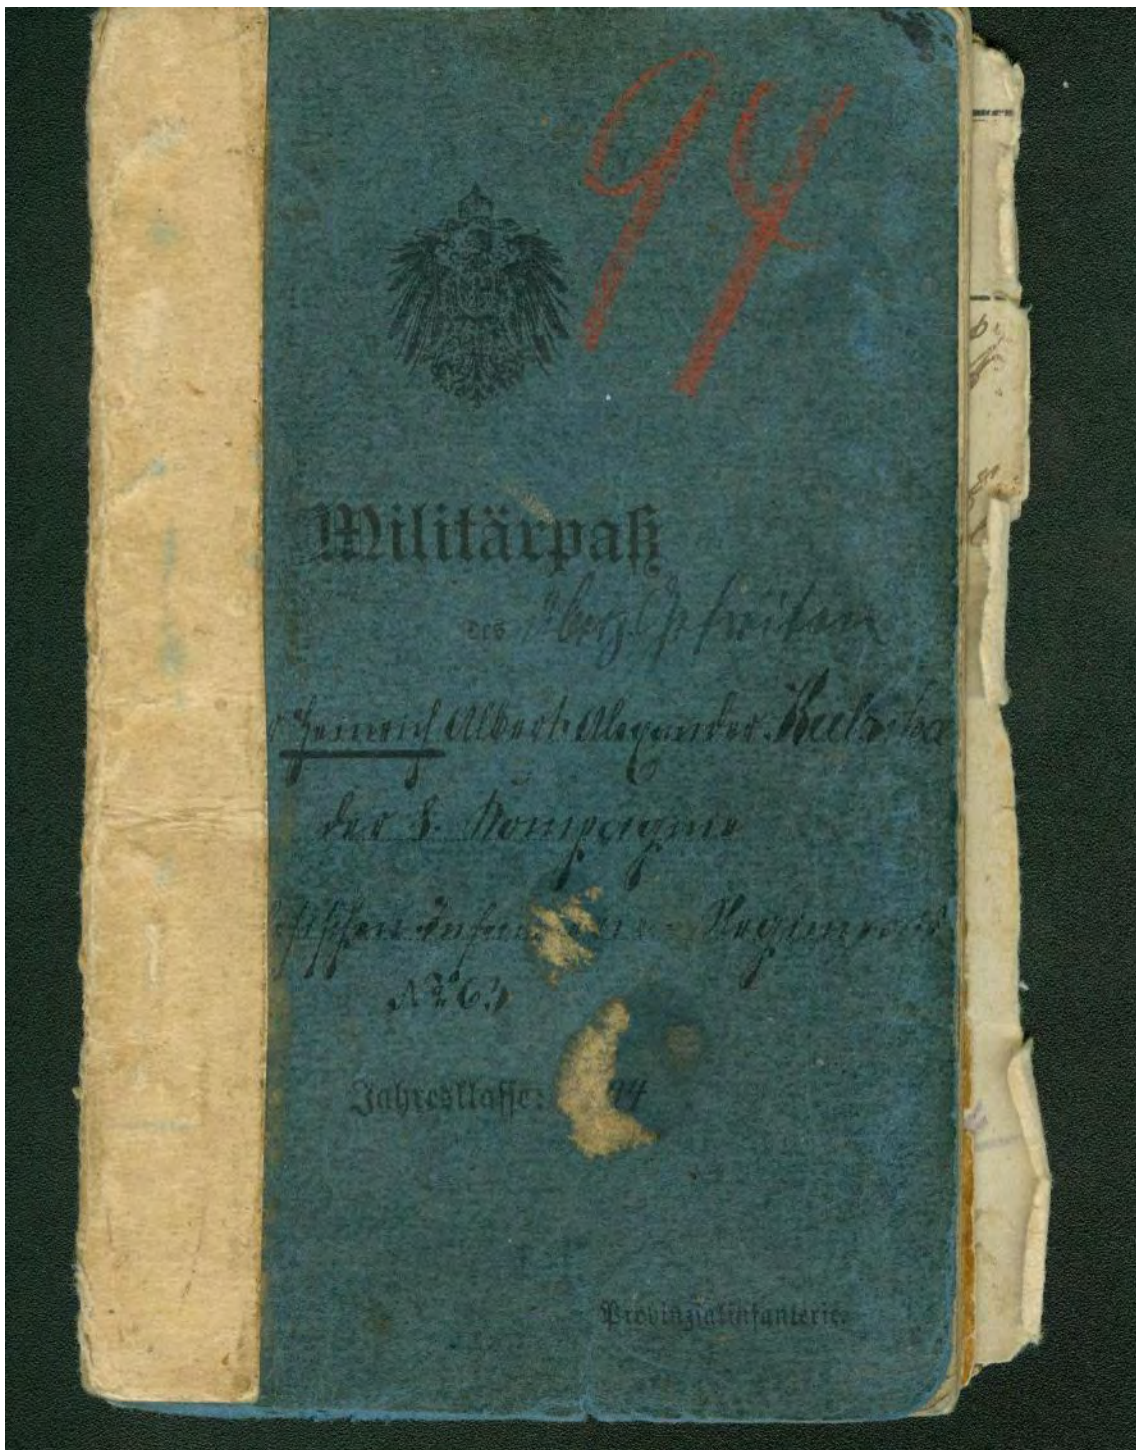 94
Militärpaß
des Gefreiten
Heinrich Albert Alexander
der 8. Kompagnie
Regiments
No 63
Jahresklasse: 94
Provinzialinfanterie.